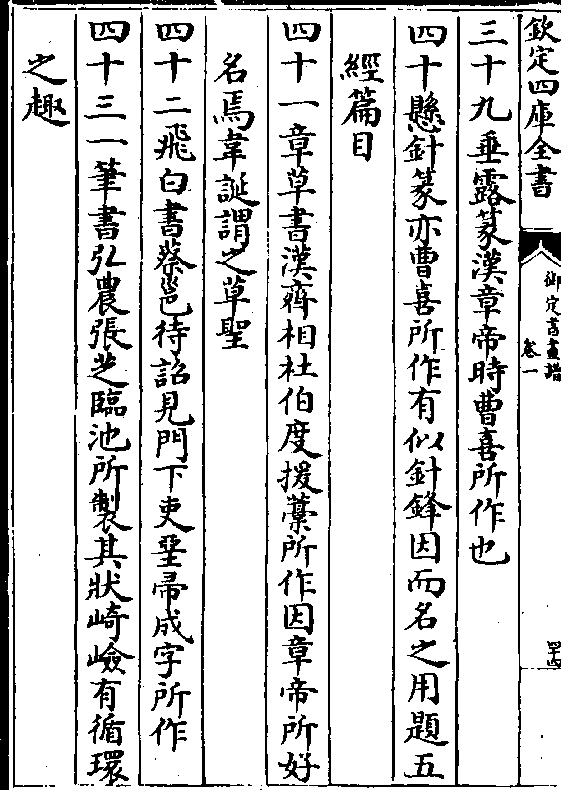 欽定四庫全書
御定書畫譜
卷一
三十九垂露篆漢章帝時曹喜所作也
四十懸針篆亦曹喜所作有似針鋒因而名之用題五
經篇目
四十一章草書漢齊相杜伯度援藁所作因章帝所好
名焉韋誕謂之草聖
四十二飛白書蔡邕待詔見門下吏堊帚成字所作
四十三一筆書弘農張芝臨池所製其狀崎嶮有循環
之趣